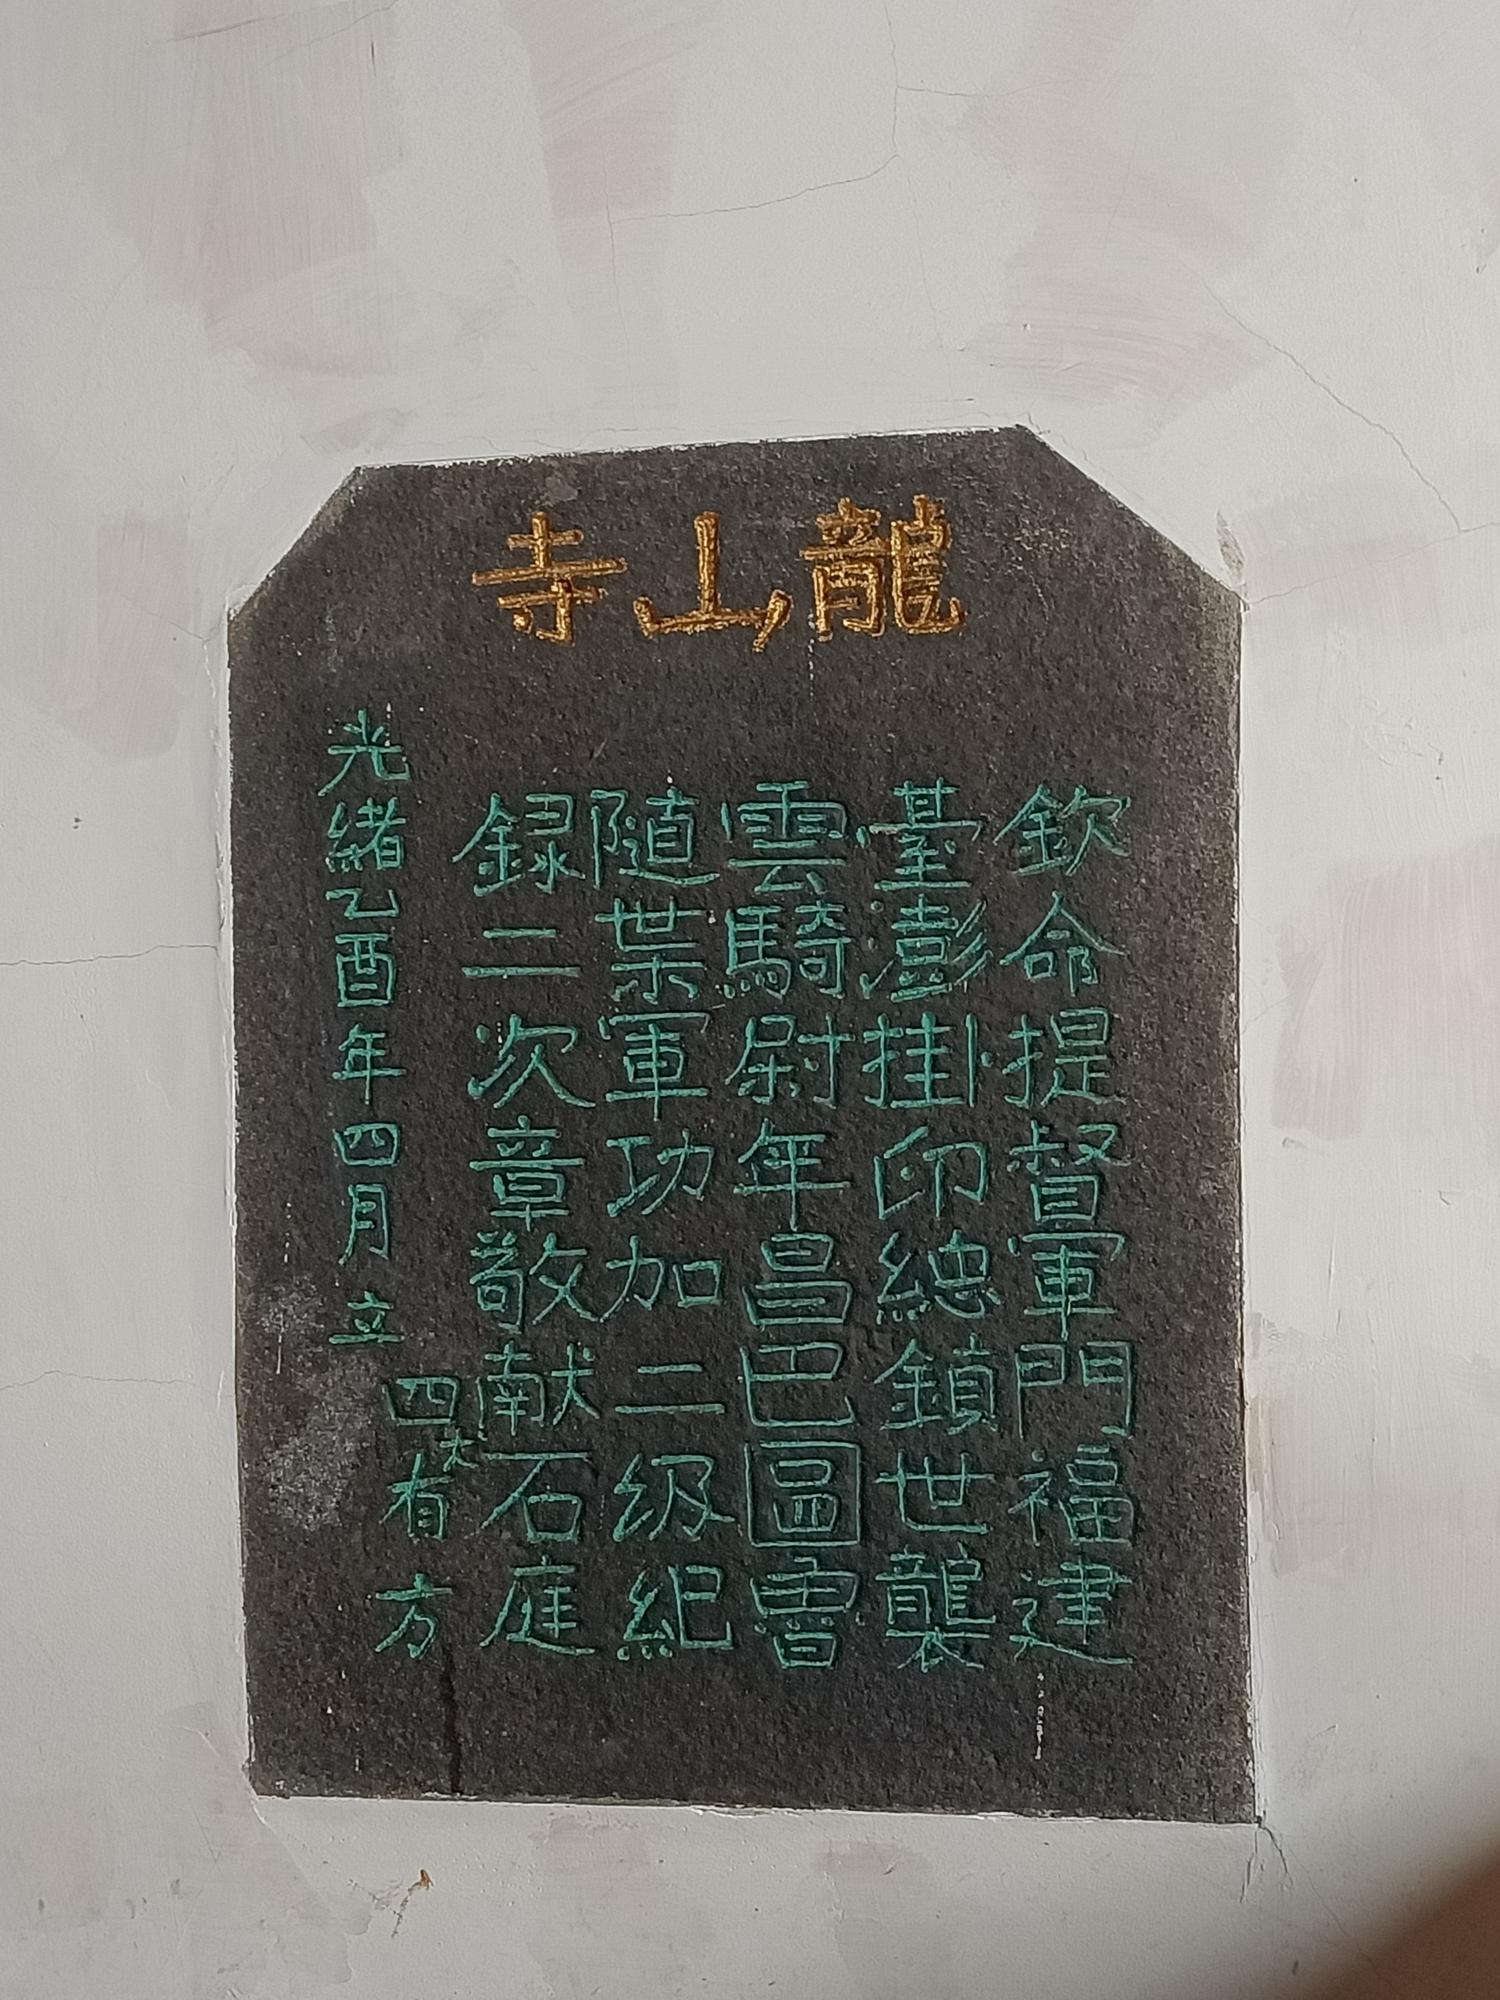 龍山寺
欽命提督軍門福建
臺澎掛印總鎮世襲
雲騎尉年昌巴圖魯
隨带軍功加二级紀
録二次章敬献石庭
四大有方
光緒乙酉年四月立